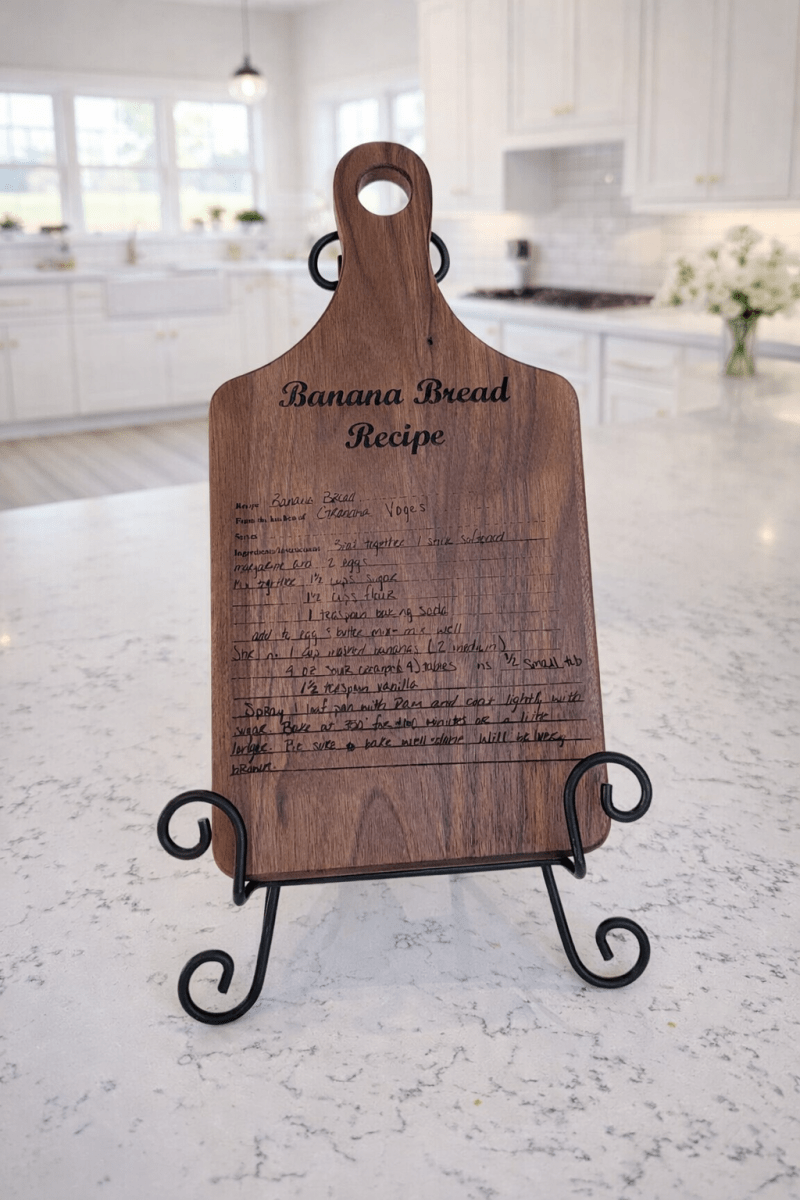 Banana Bread
Recipe
Recipe Banana Bread
From the kitchen of Grandma Voges
Serves
Ingredients/Instructions Beat together 1 stick softened
margarine and 2 eggs
Mix together 1½ cups sugar
1½ cups flour
1 teaspoon baking soda
add to egg & butter mix - mix well
in 1 cup mashed bananas (2 medium)
4 oz sour cream 4 ½ small tub
1½ teaspoon vanilla
Spray 1 loaf pan with Pam and coat lightly with
sugar. Bake at 350 for minutes or a little
longer. Be sure to bake well done will be very
brown.